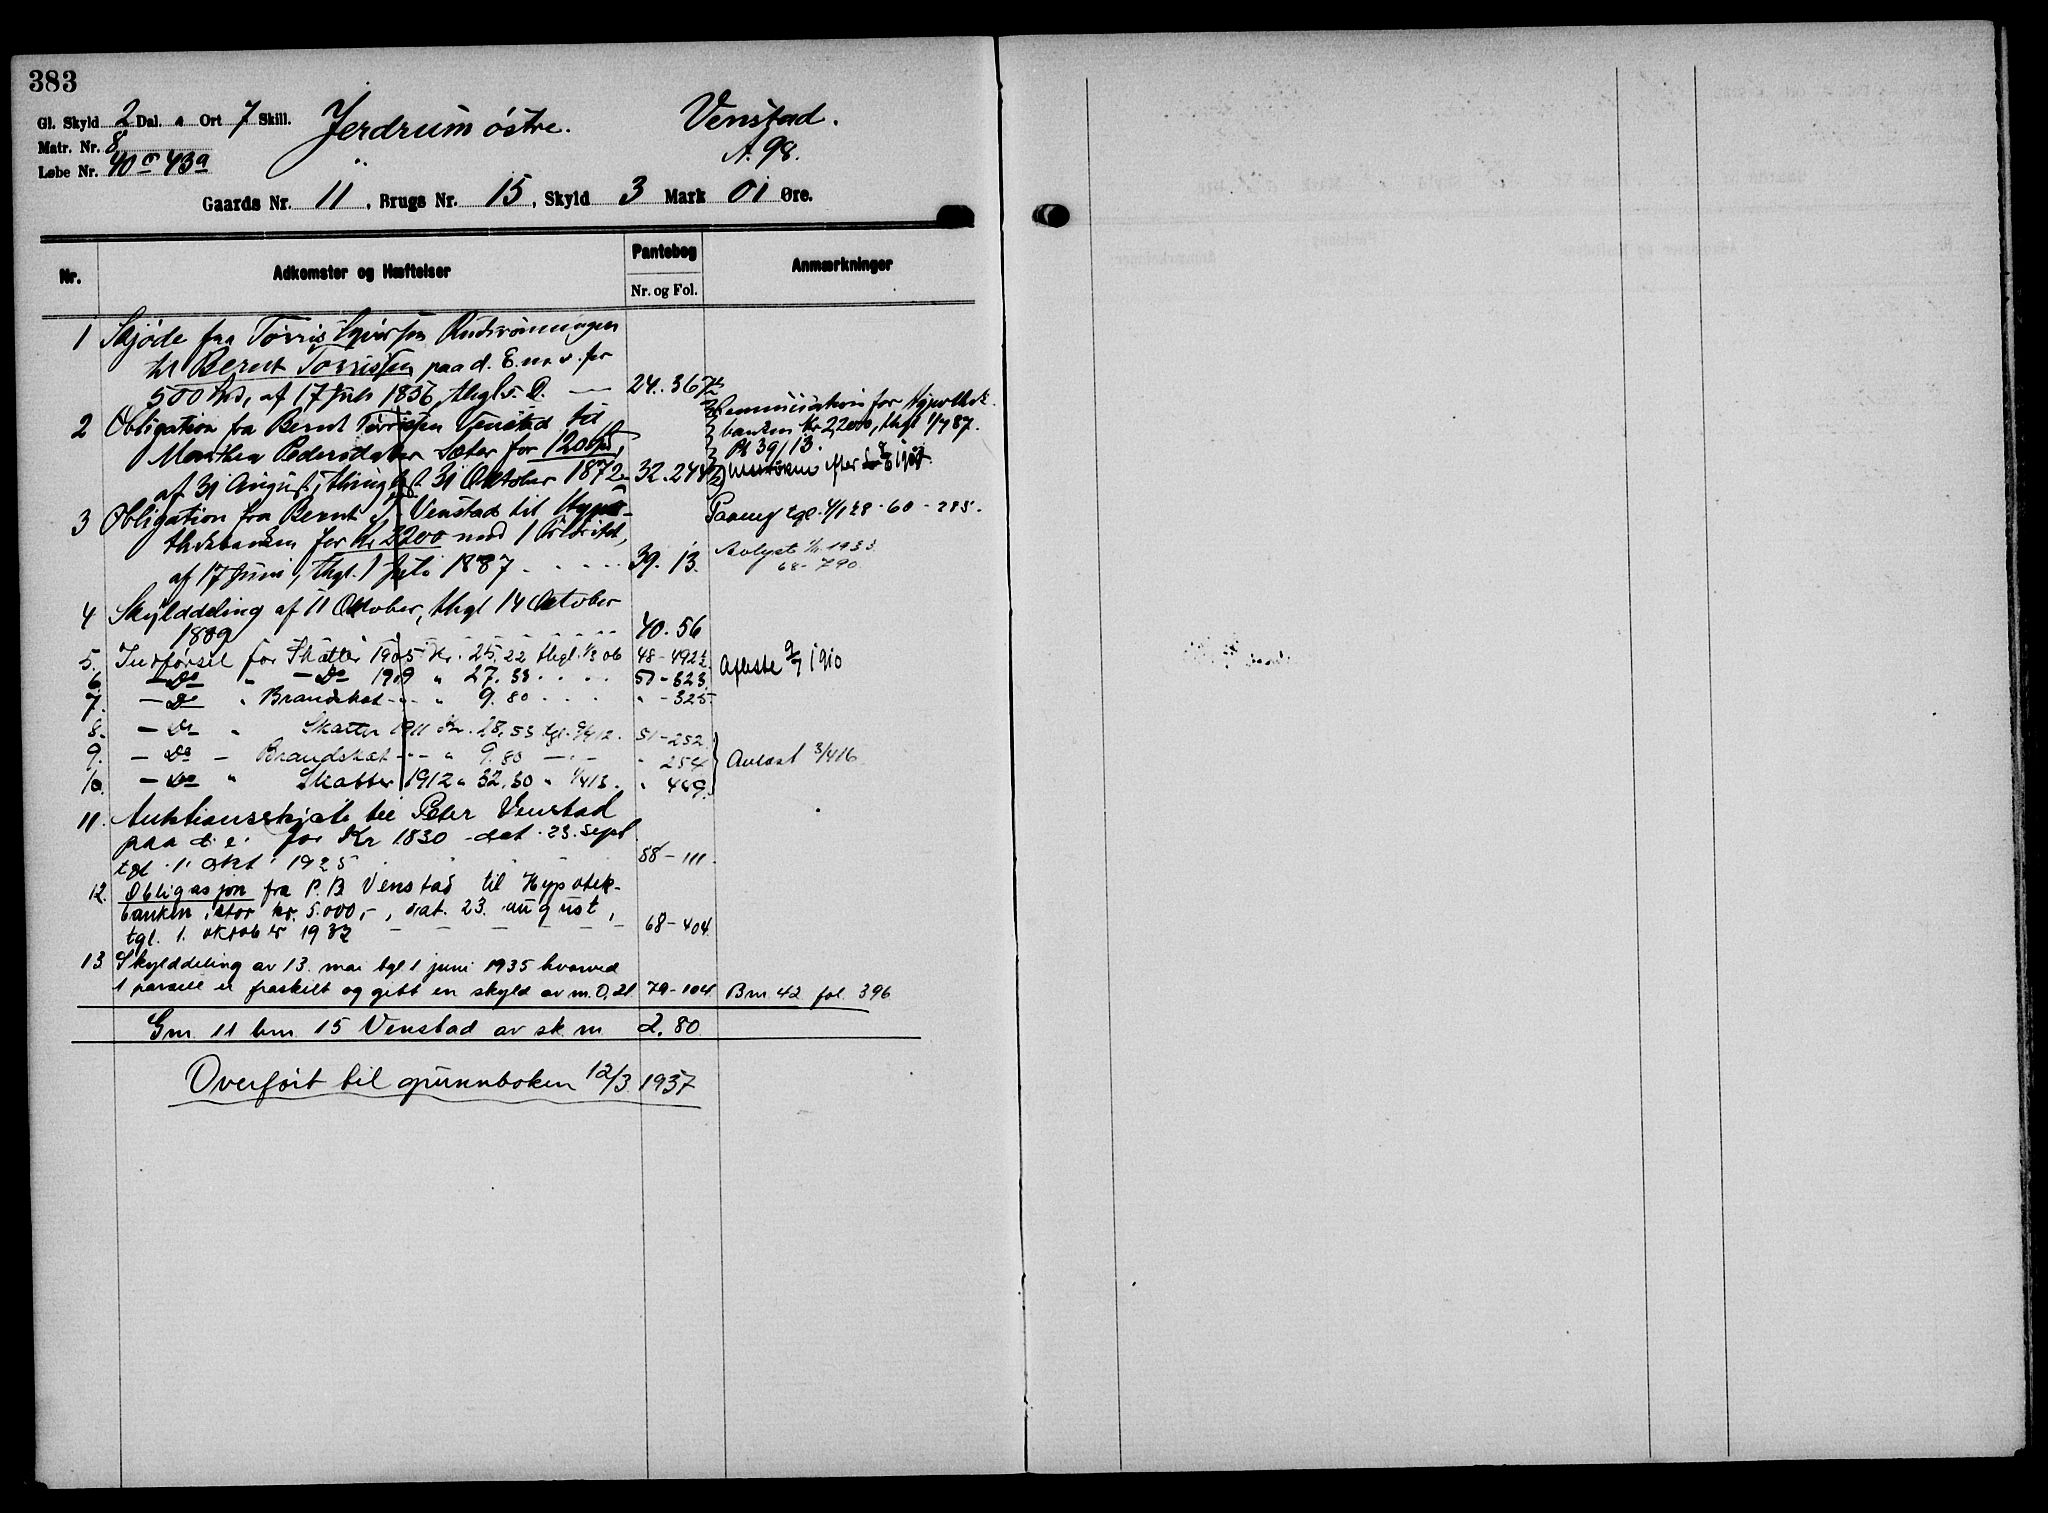 383
Gl. Skyld 2 Dal. " Ort 7 Skill.
Matr. Nr. 8
Løbe Nr. 40 c 43a
Jerdrum østre.
Venstad.
A. 98.
Gaards Nr. 11, Brugs Nr. 15, Skyld 3 Mark 01 Øre.
Nr. Adkomster og Hæftelser Pantebog Nr. og Fol. Anmærkninger
1 Skjøde fra Tørris
til Bernt Torrissen paa d. E. m. v. for
500 Spd, af 17 Juli 1856, thgl. s. D. — 24. 367
2 Obligation fra Bernt Tørrissen Venstad til
Marthea Pedersdatter Sæter for 120 Spd,
af 31 August, thinglæst 31 Oktober 1872 32. 244
for Hypothek-
banken kr 2200, thgl 1/7 87.
Pb 39/13.
efter 1907.
3 Obligation fra Bernt T. Venstad til Hypo-
thekbanken for kr 2200 med 1 Prioritet,
af 17 Juni, thgl. 1 Juli 1887 . . . . . 39. 13.
tgl. 4/1 28 - 60 - 285.
Avlyst 1933
68 - 790
4 Skylddeling af 11 Oktober, thgl 14 Oktober
1889 . . . . . 40. 56
5. Indførsel for Skatter 1905 kr. 25,22 thgl. 1/3 06 48 - 492
6. — Do " — Do 1909 " 27. 33 . . . . 50 - 323
7. — Do " Brandskat - " - " 9. 80 . . . . " - 325
Aflæste 9/7 1910
8. — Do " Skatter 1911 Kr. 28,53 tgl. 12. 51 - 252
9. — Do — Brandskat - " - " 9. 80 — " — " 254
10. — Do " Skatter 1912 " 32.30 " 1/4 13. " 469.
Avlæst 3/4 16
11. Auktionsskjøte til Peter Venstad
paa d. e. for Kr 1830 - dat. 23. sept.
tgl. 1. okt. 1925 58 - 111.
12. Obligasjon fra P. B. Venstad til Hypotek-
banken, stor kr. 5.000,-, dat. 23. august,
tgl. 1. oktober 1932 — — — — — — 68 - 404.
13 Skylddeling av 13. mai tgl 1 juni 1935 hvorved
1 parsell er fraskilt og gitt en skyld av m. 0,21. 79 - 104 Bnr. 42 fol. 396
Gnr. 11 bnr. 15 Venstad av sk. m 2.80
Overført til grunnboken 12/3 1937